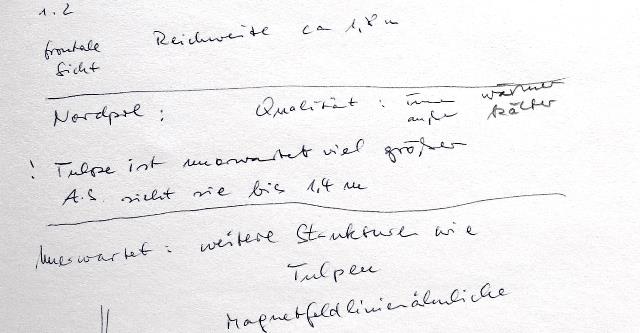 1.2
frontale Reichweite ca 1,8 m
Sicht
Nordpol : Qualität : innen wärmer
außen kälter
! Tulpe ist unerwartet viel größer
A.S. sieht sie bis 1,4 m
Unerwartet : weitere Strukturen wie
Tulpen
Magnetfeldlinienähnliche